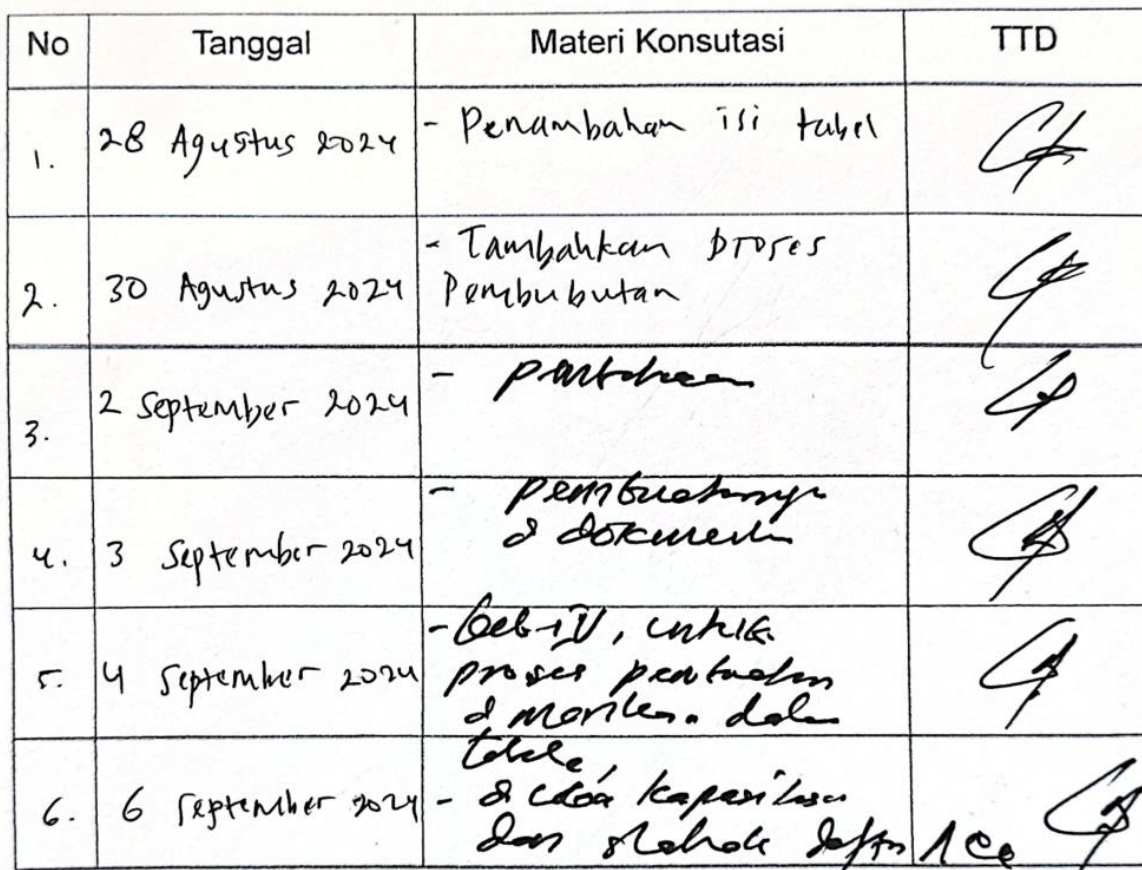 No Tanggal Materi Konsutasi TTD
1. 28 Agustus 2024 - Penambahan isi tabel
2. 30 Agustus 2024 - Tambahkan proses
Pembubutan
3. 2 September 2024 -
4. 3 September 2024 - pembuatannya
5. 4 September 2024 - Bab-IV, untuk
proses pembuatan
dalam
table,
6. 6 September 2024 -
dan